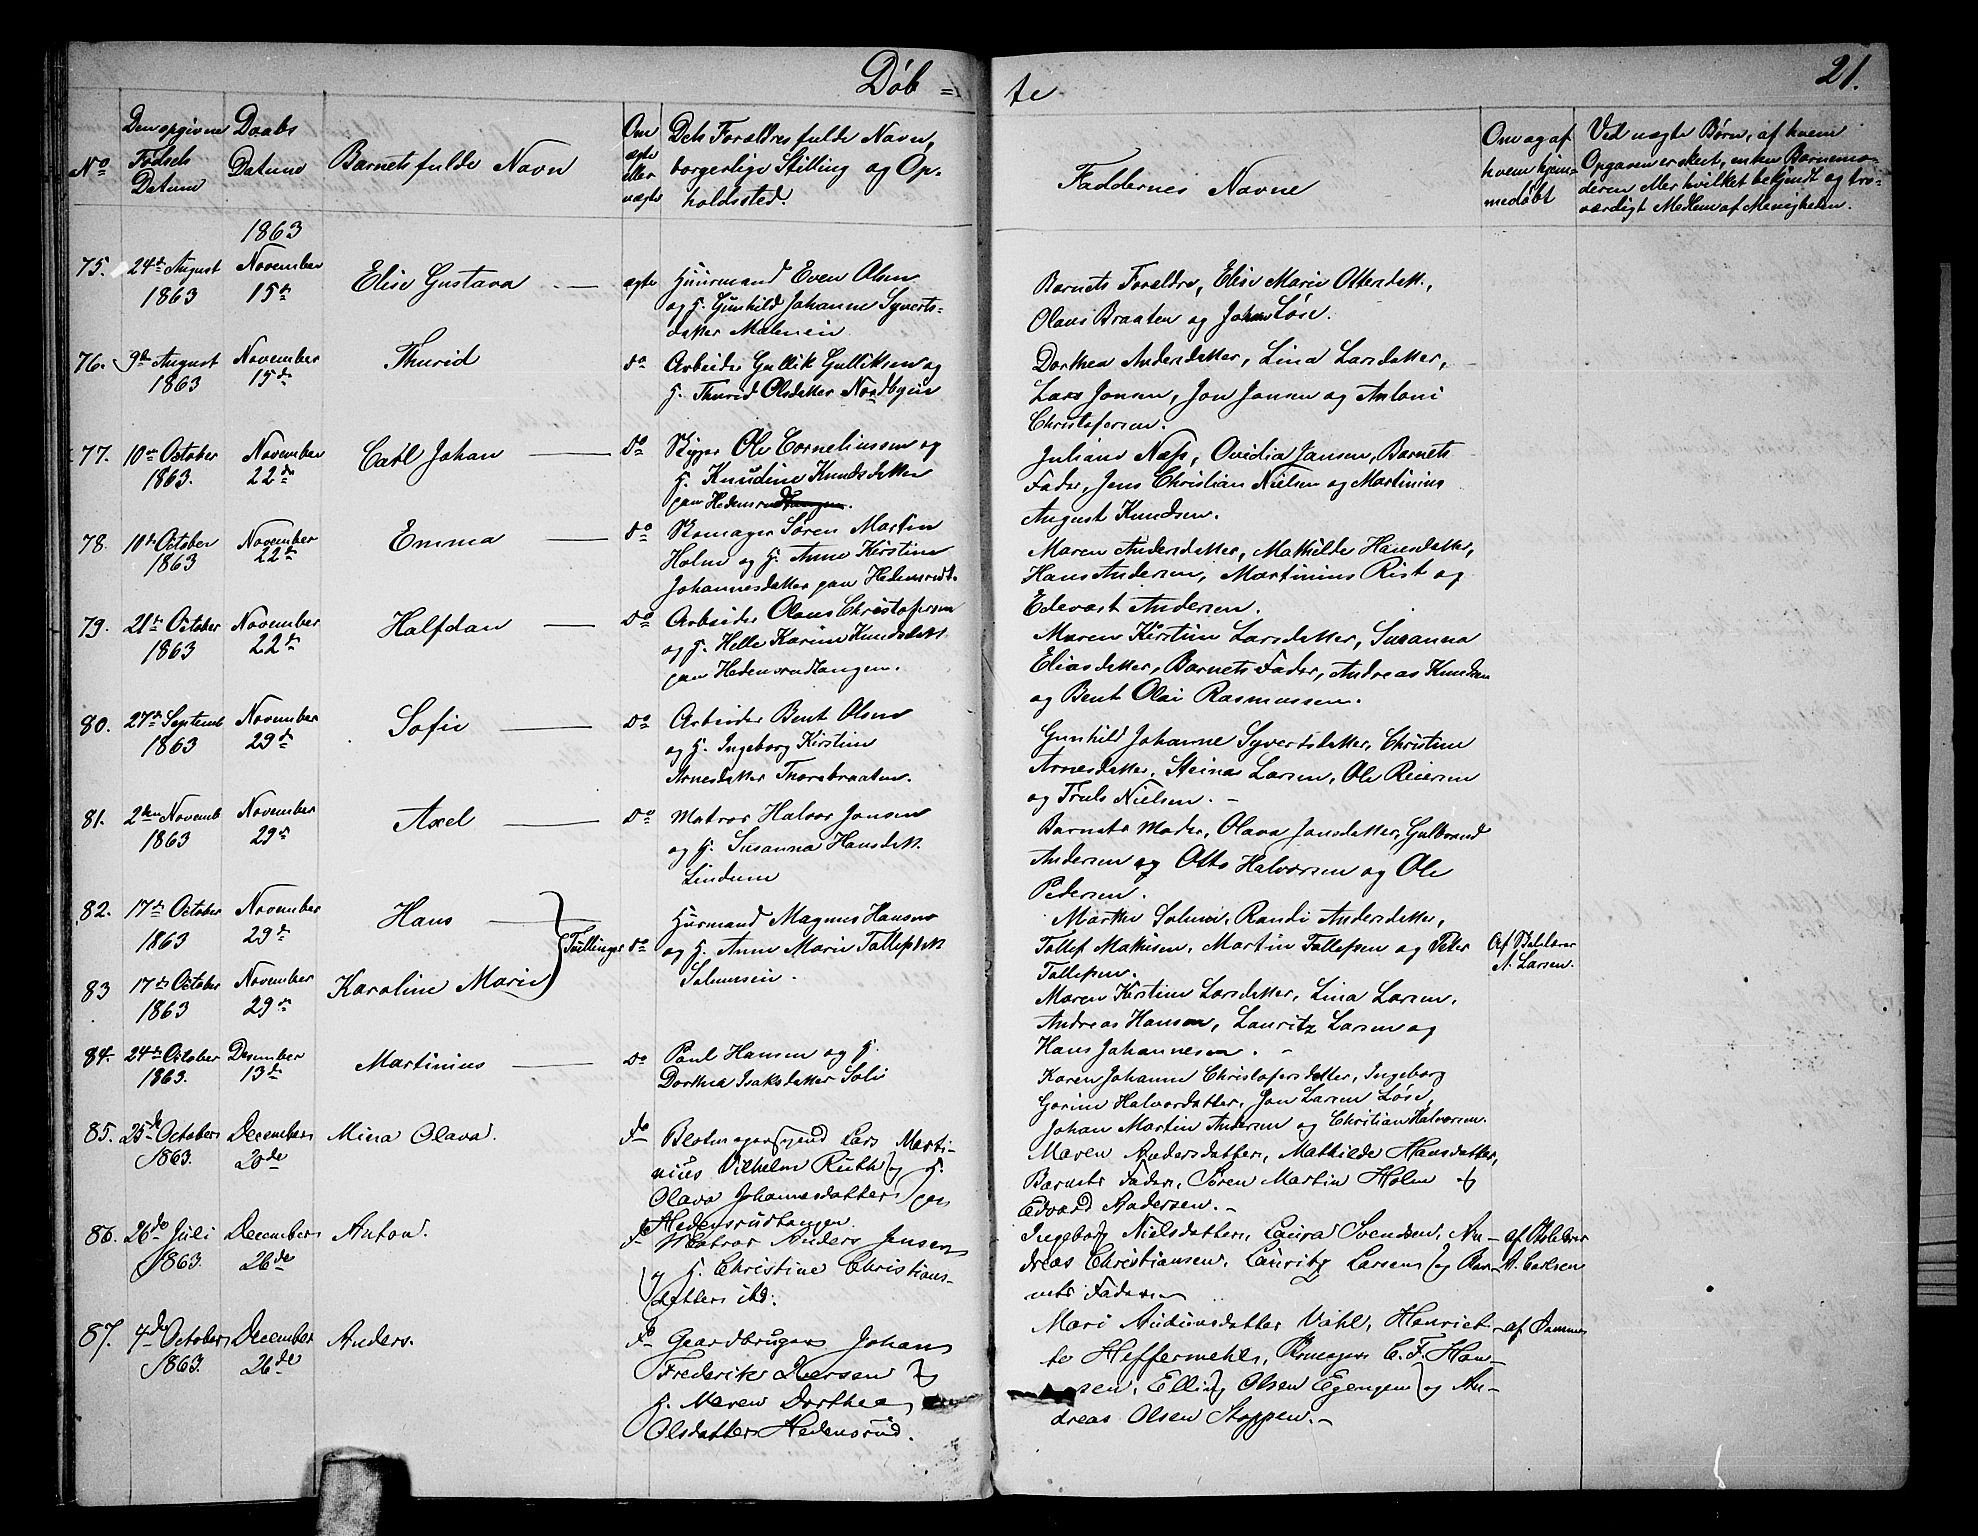 Døb = te
21.
No
Den opgivne Fødsels Datum
Daabs Datum
Barnets fulde Navn
Om ægte eller uægte
Dets Forældres fulde Navn, borgerlige Stilling og Opholdssted.
Faddernes Navne
Om og af hvem hjemmedøbt
Ved uægte Børn, af hvem Opgaven er skeet, enten Barnemoderen eller hvilket bekjendt og troværdigt Medlem af Menigheden.
1863
75. 24de August 1863 November 15de Elise Gustava — ægte Huusmand Even Olsen
og H. Gunhild Johanne Syverts-
datter Malmein
Barnets Forældre, Elise Marie Ottersdatt.,
Olaus Braaten og Johan Løse.
76. 9de August 1863 November 15de Thurid do Arbeider Gullik Gulliksen og
H. Thurid Olsdatter Nordbyeie
Dorthea Andersdatter, Lina Larsdatter,
Lars Jonsen, Jon Jonsen og Antoni
Christofersen.
77. 10de October 1863. November 22de Carl Johan — do Skipper Ole Corneliussen og
H. Knudine Knudsdatter
paa Hedensrud
Juliane Næss, Ovidia Jansen, Barnets
Fader, Jens Christian Nielsen og Martinius
August Knudsen.
78. 10de October 1863 November 22de Emma — do Skomager Søren Martin
Holm og H. Anne Kirstine
Johannesdatter paa Hedensrudt.
Maren Andersdatter, Mathilde Hansdatter,
Hans Andersen, Martinius Rist og
Edevart Andersen.
79. 21de October 1863 November 22de Halfdan — do Arbeider Olaus Christofersen
og H. Helle Karine Knudsdatt.
paa Hedensrudtangen.
Maren Kirstine Larsdatter, Susanna
Eliasdatter, Barnets Fader, Andreas Knudsen
og Bent Olai Rasmussen.
80. 27de Septemb 1863 November 29de Sofie — do Arbeider Bent Olsen
og H. Ingeborg Kirstine
Arnesdatter Thorsbraaten.
Gunhild Johanne Syvertsdatter, Christine
Arnesdatter, Steinar Larsen, Ole Reiersen
og Truls Nielsen. -
81. 2den Novemb 1863 November 29de Axel — do Matros Halvor Jonsen
og H. Susanna Hansdatt.
Lindum
Barnets Moder, Olava Jonsdatter, Gulbrand
Andersen og Otto Halvorsen og Ole
Pedersen.
82. 17de October 1863 November 29de Hans — Tvillinger do Huusmand Magnus Hansen
og H. Anne Marie Tollefsdatt
Solumseie.
Marthe Solum, Randi Andersdatter,
Tollef Mathisen, Martin Tollefsen og Peter
Tollefsen.
Af Skolelærer
A. Larsen.
83 17de October 1863 November 29de Karoline Marie
Maren Kirstine Larsdatter, Lina Larsen,
Andreas Hansen, Lauritz Larsen og
Hans Johannesen. -
84. 24de October 1863. Desember 13de Martinius — do Paul Hansen og H.
Dorthea Isaksdatter Soli
Karen Johanne Christofersdatter, Ingeborg
Gorine Halvorsdatter, Jon Larsen Løse,
Johan Martin Andersen og Christian Halvorsen.
85. 25de October 1863. December 20de Mina Olava. do Blokmagersvend Lars Marti-
nius Vilhelm Ruth og H.
Olava Johannesdatter paa
Hedensrudtangen
Maren Andersdatter, Mathilde Hansdatter,
Barnets Fader, Søren Martin Holm og
Edvard Andersen. -
86. 26de Juli 1863. December 26de Anton. do Matros Anders Jensen
og H. Christine Christians-
datter ibd.
Ingeborg Nielsdatter, Laura Svendsen, An-
dreas Christiansen, Lauritz Larsen og Bar-
nets Fader -
af Skolelærer
A. Carlsen
87. 4de October 1863. December 26de Anders. do Gaardbruger Johan
Frederik Iversen og
H. Maren Dorthea
Olsdatter Hedensrud.
Mari Audunsdatter Vahl, Henriet-
te Heffermehl, C. F. Han-
sen, Elling Olsen Egengen og An-
dreas Olsen Stoppen. -
af Samme